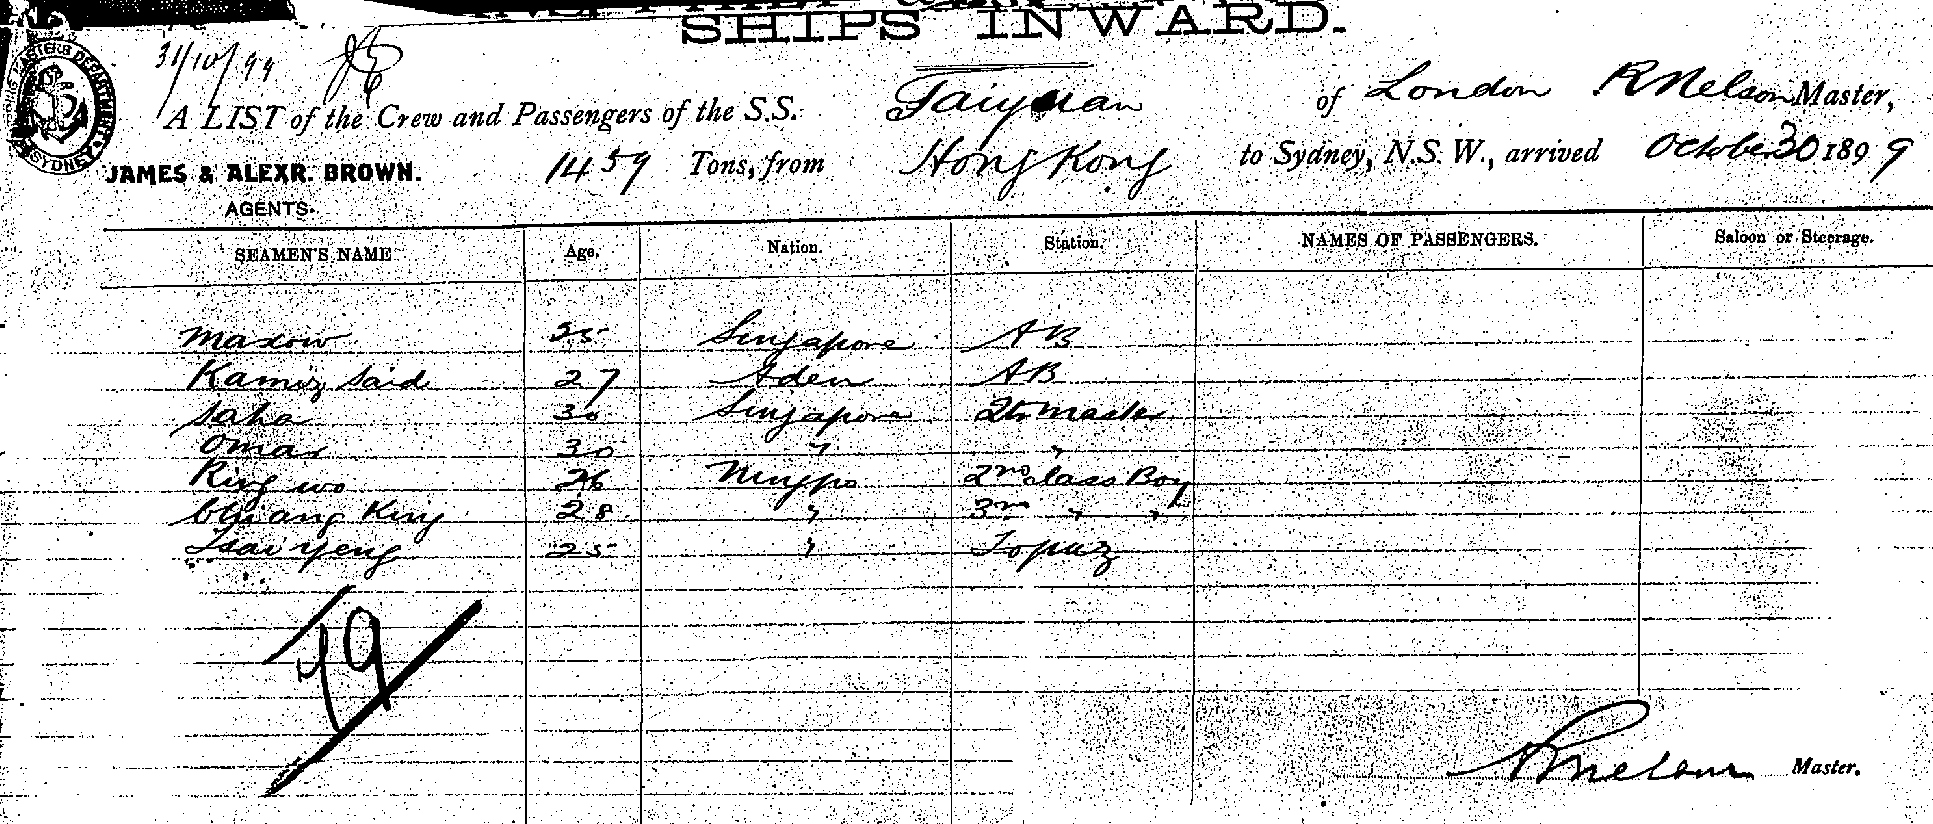 SHIPS INWARD.
31/10/99
A LIST of the Crew and Passengers of the S.S. Taiyuan of London R Nelson Master,
JAMES & ALEXR. BROWN. 1459 Tons, from Hong Kong to Sydney, N.S.W., arrived October 30 1899
AGENTS.
SEAMEN'S NAME Age. Nation. Station. NAMES OF PASSENGERS. Saloon or Steerage.
Singapore AB
Said 27 Aden AB
Saha 30 Singapore Qtr Master
Omar 30 " "
26 Ningpo 2nd Class Boy
King 28 " 3rd " "
Tsai Yeng 25 " Topaz
19
R Nelson Master.